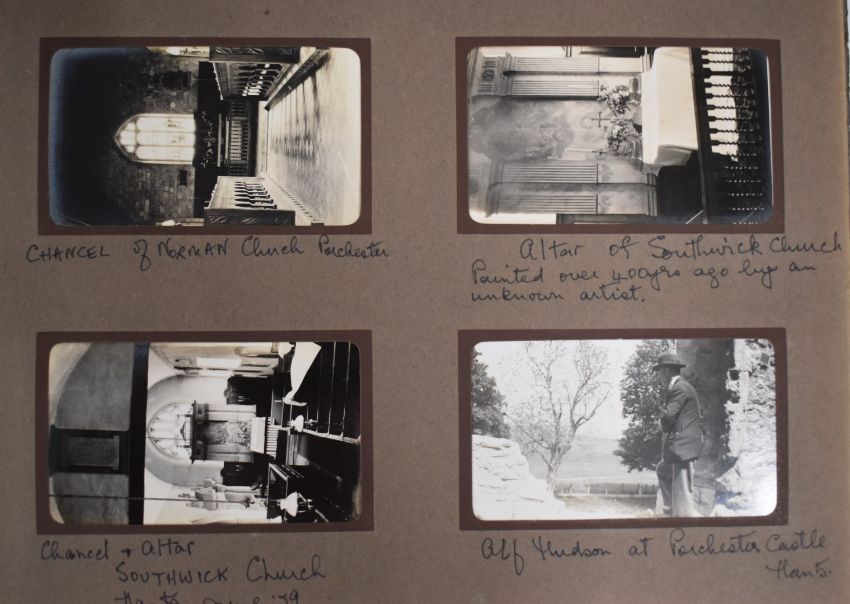 CHANCEL of NORMAN Church Porchester
Altar of Southwick Church
Painted over 400yrs ago by an
unknown artist.
Chancel + Altar
SOUTHWICK Church
Alf Hudson at Porchester Castle
Hants.